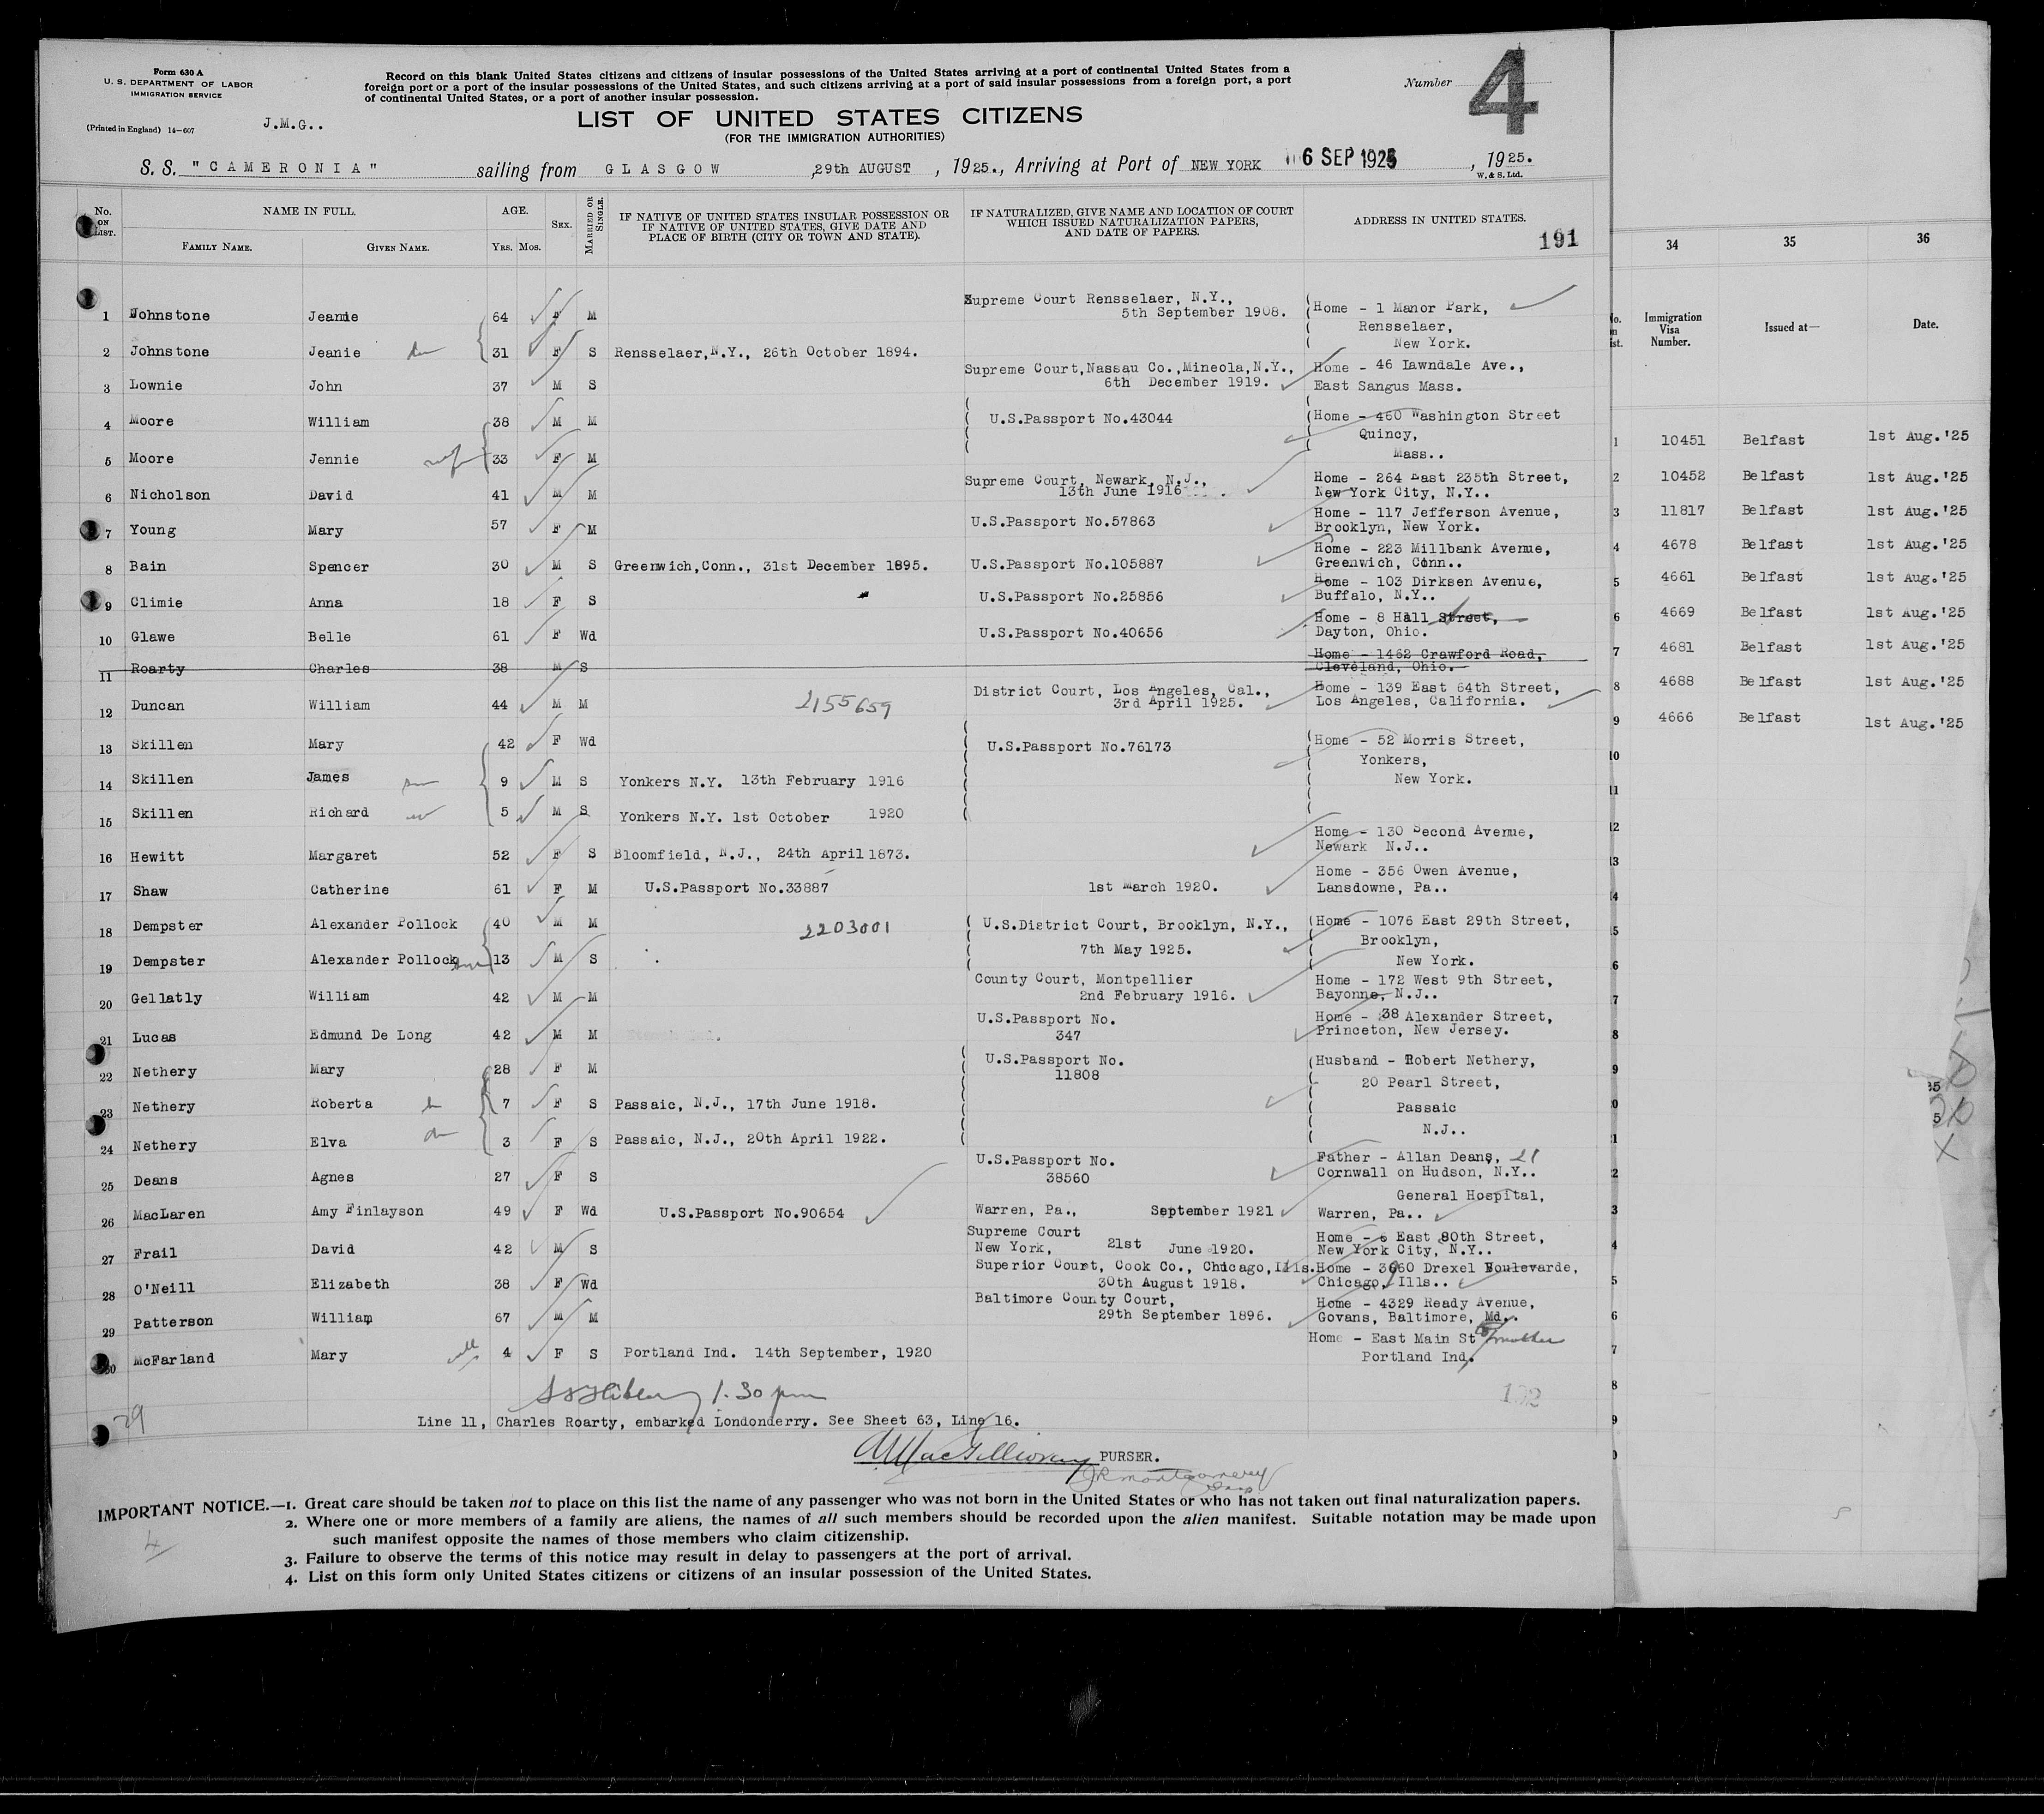 Form 630 A
U. S. DEPARTMENT OF LABOR
IMMIGRATION SERVICE
(Printed in England) 14-607
J.M.G..
Record on this blank United States citizens and citizens of insular possessions of the United States arriving at a port of continental United States from a
foreign port or a port of the insular possessions of the United States, and such citizens arriving at a port of said insular possessions from a foreign port, a port
of continental United States, or a port of another insular possession.
Number 4
LIST OF UNITED STATES CITIZENS
(FOR THE IMMIGRATION AUTHORITIES)
S.S. "CAMERONIA" sailing from GLASGOW, 29th AUGUST, 1925., Arriving at Port of NEW YORK 6 SEP 1925, 1925.
W. & S. Ltd.
No. ON LIST. NAME IN FULL. AGE. SEX. MARRIED OR SINGLE. IF NATIVE OF UNITED STATES INSULAR POSSESSION OR IF NATIVE OF UNITED STATES, GIVE DATE AND PLACE OF BIRTH (CITY OR TOWN AND STATE). IF NATURALIZED, GIVE NAME AND LOCATION OF COURT WHICH ISSUED NATURALIZATION PAPERS, AND DATE OF PAPERS. ADDRESS IN UNITED STATES.
FAMILY NAME. GIVEN NAME. YRS. MOS.
191
1 Johnstone Jeanie 64 F M Supreme Court Rensselaer, N.Y., 5th September 1908. Home - 1 Manor Park, Rensselaer, New York.
2 Johnstone Jeanie 31 F S Rensselaer,N.Y., 26th October 1894.
3 Lownie John 37 M S Supreme Court,Nassau Co.,Mineola,N.Y., 6th December 1919. Home - 46 Lawndale Ave., East Sangus Mass.
4 Moore William 38 M M U.S.Passport No.43044 Home - 460 Washington Street Quincy, Mass..
5 Moore Jennie wife 33 F M
6 Nicholson David 41 M M Supreme Court, Newark, N.J., 13th June 1916 Home - 264 East 235th Street, New York City, N.Y..
7 Young Mary 57 F M U.S.Passport No.57863 Home - 117 Jefferson Avenue, Brooklyn, New York.
8 Bain Spencer 30 M S Greenwich,Conn., 31st December 1895. U.S.Passport No.105887 Home - 223 Millbank Avenue, Greenwich, Conn..
9 Climie Anna 18 F S U.S.Passport No.25856 Home - 103 Dirksen Avenue, Buffalo, N.Y..
10 Glawe Belle 61 F Wd U.S.Passport No.40656 Home - 8 Hall Street, Dayton, Ohio.
11 Roarty Charles 38 M S Home - 1462 Crawford Road, Cleveland, Ohio.
12 Duncan William 44 M M 2155659 District Court, Los Angeles, Cal., 3rd April 1925. Home - 139 East 64th Street, Los Angeles, California.
13 Skillen Mary 42 F Wd U.S.Passport No.76173 Home - 52 Morris Street, Yonkers, New York.
14 Skillen James son 9 M S Yonkers N.Y. 13th February 1916
15 Skillen Richard 5 M S Yonkers N.Y. 1st October 1920
16 Hewitt Margaret 52 F S Bloomfield, N.J., 24th April 1873. Home - 130 Second Avenue, Newark N.J..
17 Shaw Catherine 61 F M U.S.Passport No.33887 1st March 1920. Home - 356 Owen Avenue, Lansdowne, Pa..
18 Dempster Alexander Pollock 40 M M 2203001 U.S.District Court, Brooklyn, N.Y., 7th May 1925. Home - 1076 East 29th Street, Brooklyn, New York.
19 Dempster Alexander Pollock son 13 M S
20 Gellatly William 42 M M County Court, Montpellier 2nd February 1916. Home - 172 West 9th Street, Bayonne, N.J..
21 Lucas Edmund De Long 42 M M U.S.Passport No. 347 Home - 38 Alexander Street, Princeton, New Jersey.
22 Nethery Mary 28 F M U.S.Passport No. 11808 Husband - Robert Nethery, 20 Pearl Street, Passaic N.J..
23 Nethery Roberta 7 F S Passaic, N.J., 17th June 1918.
24 Nethery Elva 3 F S Passaic, N.J., 20th April 1922.
25 Deans Agnes 27 F S U.S.Passport No. 38560 Father - Allan Deans, 21 Cornwall on Hudson, N.Y..
26 MacLaren Amy Finlayson 49 F Wd U.S.Passport No.90654 Warren, Pa., September 1921 General Hospital, Warren, Pa..
27 Frail David 42 M S Supreme Court New York, 21st June 1920. Home - 6 East 80th Street, New York City, N.Y..
28 O'Neill Elizabeth 38 F Wd Superior Court, Cook Co., Chicago,Ills. 30th August 1918. Home - 3960 Drexel Boulevarde, Chicago, Ills..
29 Patterson William 67 M M Baltimore County Court, 29th September 1896. Home - 4329 Ready Avenue, Govans, Baltimore, Md..
30 McFarland Mary 4 F S Portland Ind. 14th September, 1920 Home - East Main St mother Portland Ind.
1.30 pm
192
29
Line 11, Charles Roarty, embarked Londonderry. See Sheet 63, Line 16.
A MacGillivray PURSER.
JR Montgomery
IMPORTANT NOTICE.—1. Great care should be taken not to place on this list the name of any passenger who was not born in the United States or who has not taken out final naturalization papers.
2. Where one or more members of a family are aliens, the names of all such members should be recorded upon the alien manifest. Suitable notation may be made upon
such manifest opposite the names of those members who claim citizenship.
3. Failure to observe the terms of this notice may result in delay to passengers at the port of arrival.
4. List on this form only United States citizens or citizens of an insular possession of the United States.
4
34 35 36
Immigration Visa Number. Issued at— Date.
1 10451 Belfast 1st Aug.'25
2 10452 Belfast 1st Aug.'25
3 11817 Belfast 1st Aug.'25
4 4678 Belfast 1st Aug.'25
5 4661 Belfast 1st Aug.'25
6 4669 Belfast 1st Aug.'25
7 4681 Belfast 1st Aug.'25
8 4688 Belfast 1st Aug.'25
9 4666 Belfast 1st Aug.'25
10
11
12
13